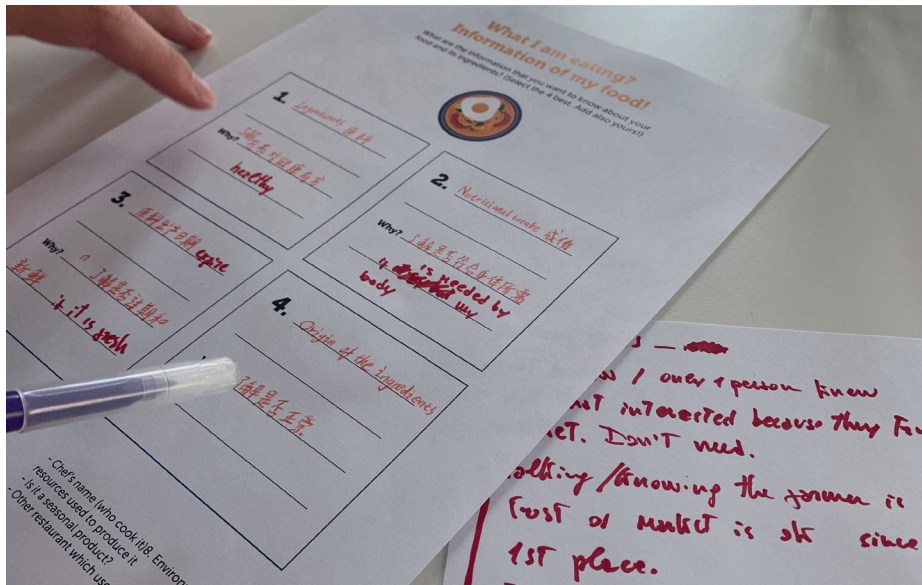 What I am eating?
Information of my food!
What are the information that you want to know about your
food and its ingredients? (Select the 4 best. Add also yours!)
1. Ingredients
Why?
healthy
2. Nutritional intake 成情
Why? 了解是否符合身体所需
is needed by
my
body
3. 原料生产日期 expire
Why? 了解是否过期和
新鲜
it is fresh
4. Origin of the ingredients
了解是否正常
- Chef's name (who cook it)8. Environ
resources used to produce it
- Is it a seasonal product?
- Other restaurant which use
/ only 1 person knew
not interested because they
Don't need.
/knowing the farmer is
trust of market is ok since
1st place.